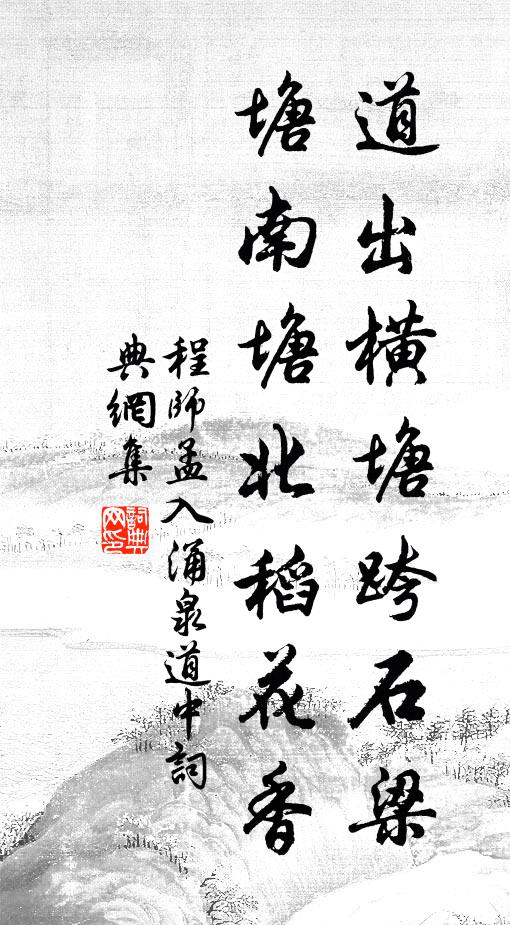 道出橫塘跨石梁
塘南塘北稻花香
程師孟入涌泉道中詞
典網集
詞典网印